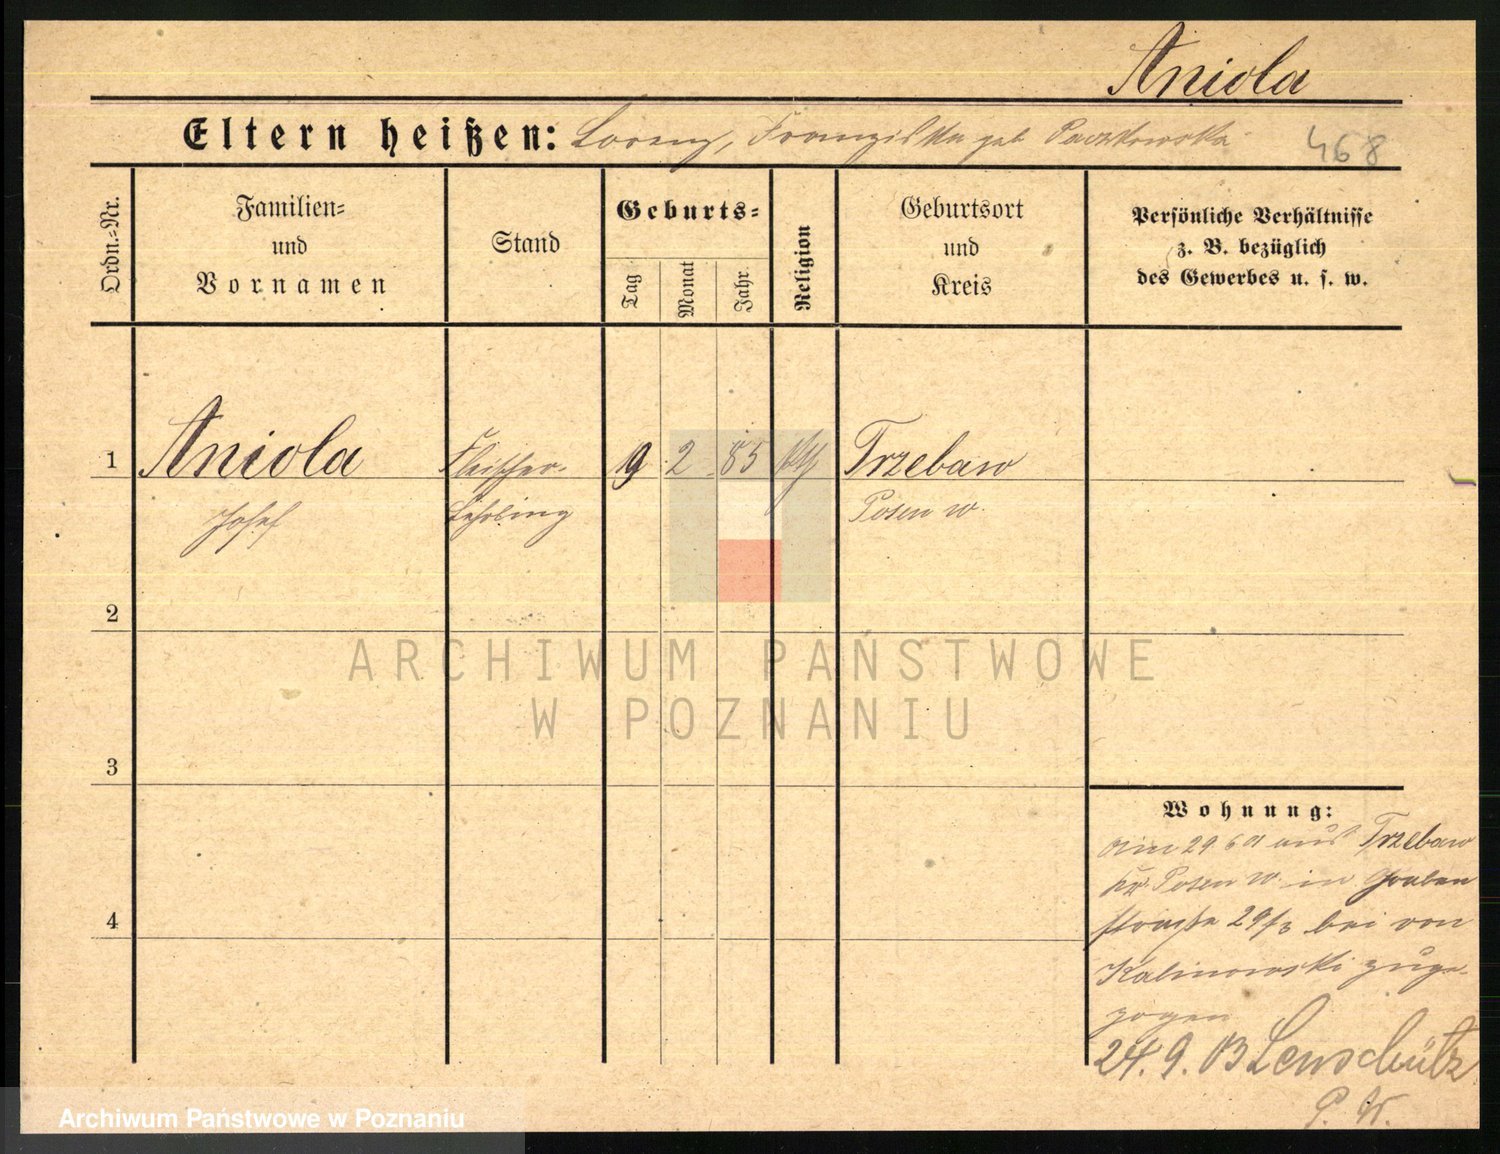 Aniola
Eltern heißen: Lorenz, Franziska geb Paczkowska
468
Ordn.-Nr.
Familien-
und
Vornamen
Stand
Geburts-
Tag
Monat
Jahr
Religion
Geburtsort
und
Kreis
Persönliche Verhältnisse
z. B. bezüglich
des Gewerbes u. s. w.
1 Aniola Fleischer- 9 2 85 kth Trzebaw
Josef Lehrling Posen W.
2
3
4
Wohnung:
Am 29 6 01 aus Trzebaw
Kr. Posen W. in Graben
straße 29/3 bei von
Kalinowski zuge-
zogen
24. 9. 03 Lenschütz
P. W.
ARCHIWUM PAŃSTWOWE
W POZNANIU
Archiwum Państwowe w Poznaniu